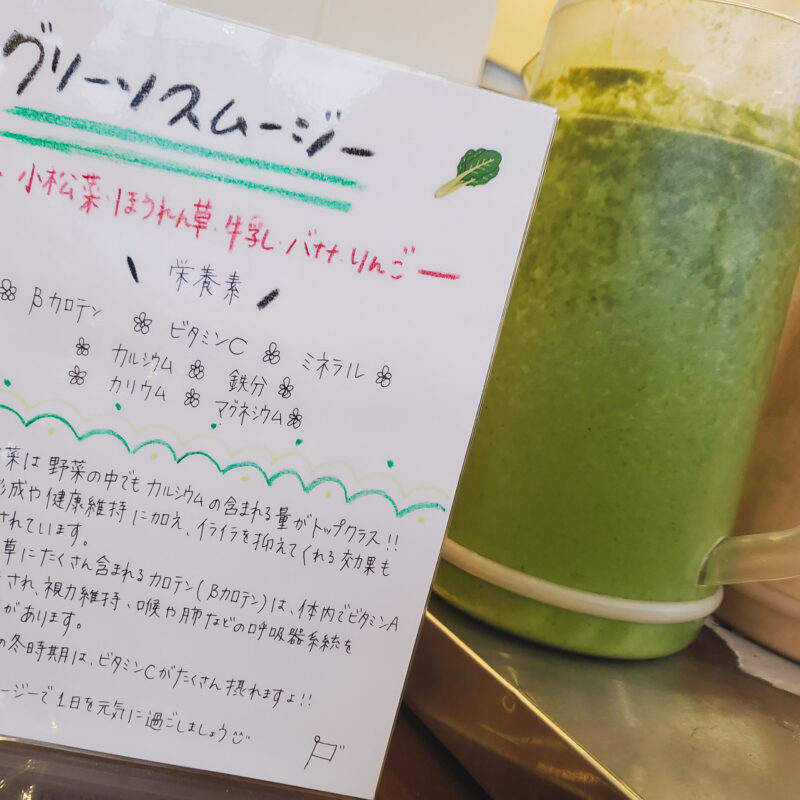 グリーンスムージー
小松菜・ほうれん草・牛乳・バナナ・りんご
栄養素
βカロテン ビタミンC ミネラル
カルシウム 鉄分
カリウム マグネシウム
菜は野菜の中でもカルシウムの含まれる量がトップクラス!!
形成や健康維持に加え、イライラを抑えてくれる効果も
されています。
草にたくさん含まれるカロテン(βカロテン)は、体内でビタミンA
され、視力維持、喉や肺などの呼吸器系統を
があります。
の冬時期は、ビタミンCがたくさん摂れますよ!!
ージーで1日を元気に過ごしましょう